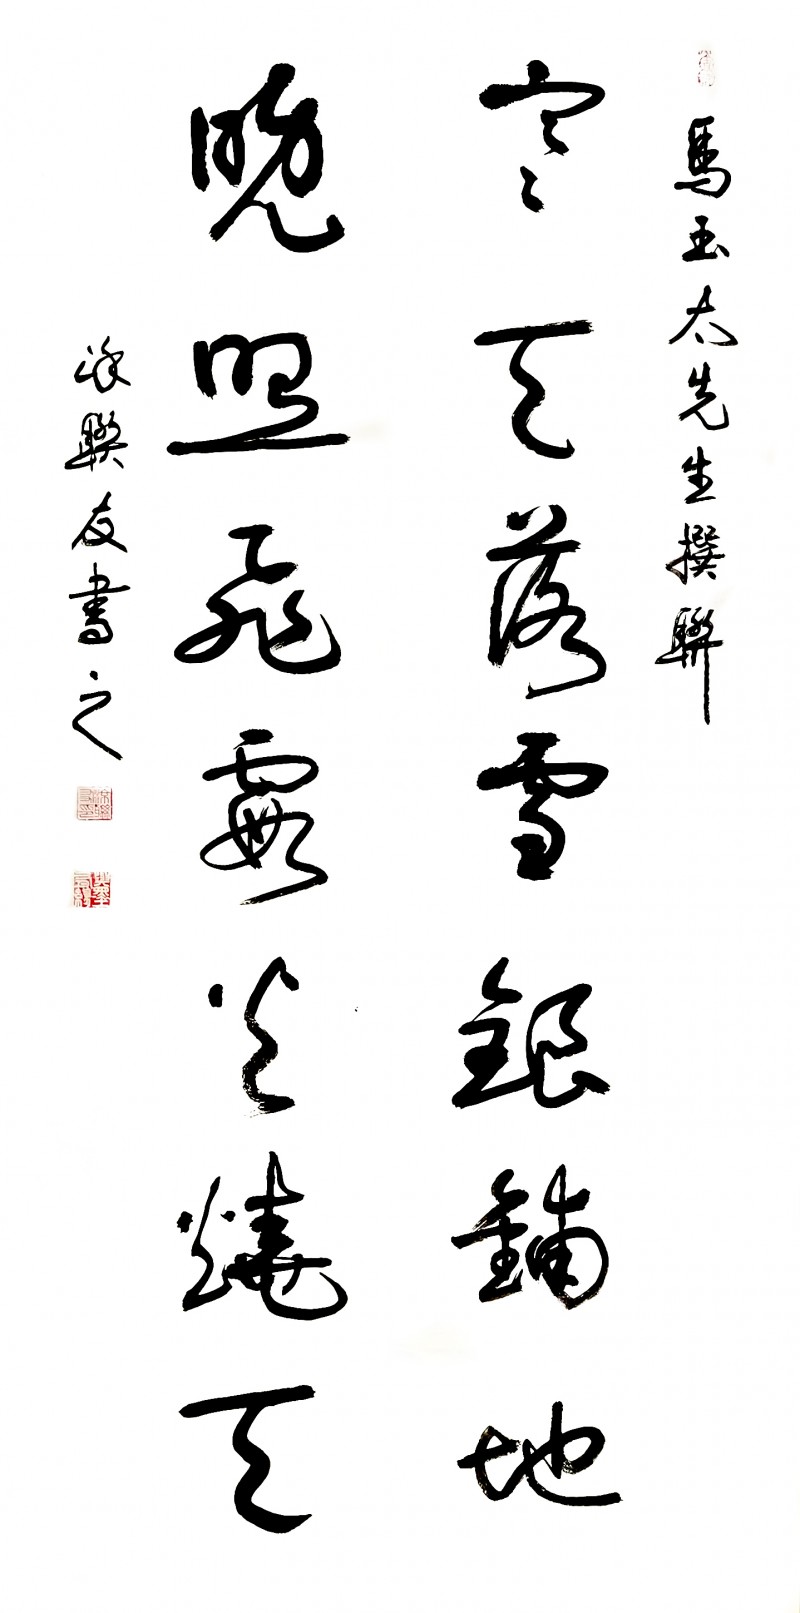 馬玉太先生撰聯
寒天落雪銀鋪地
晚照飛霞火燒天
涂聯友書之